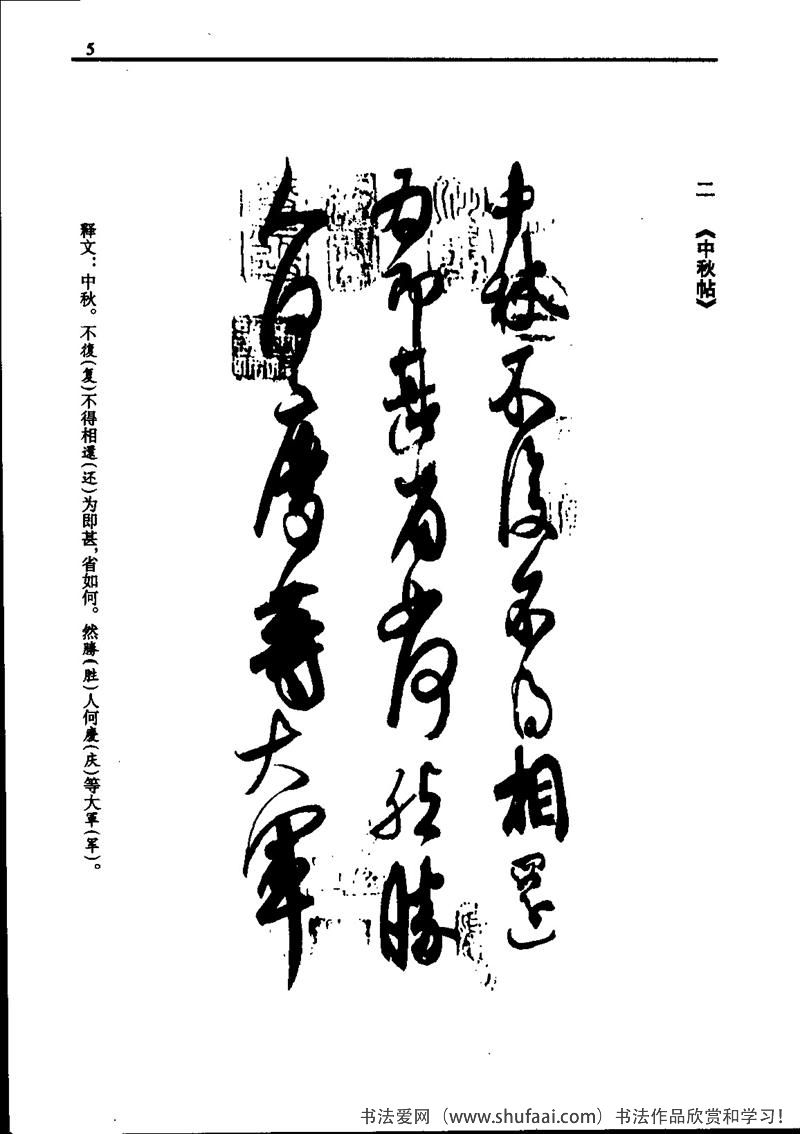 5
二 《中秋帖》
中秋不復不得相還
为即甚省如何然勝
人何慶等大軍
释文：中秋。不復(复)不得相還(还)为即甚，省如何。然勝(胜)人何慶(庆)等大軍(军)。
书法爱网（www.shufaai.com）书法作品欣赏和学习！